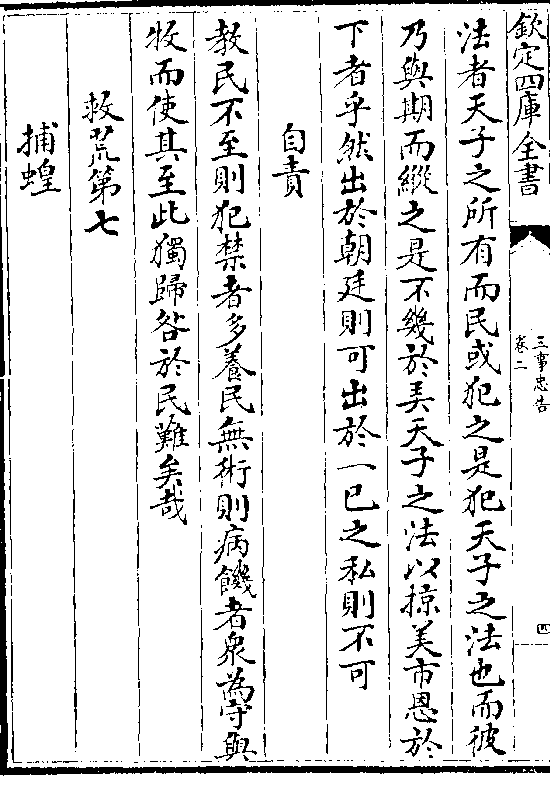 欽定四庫全書
三事忠告
卷二
四
法者天子之所有而民或犯之是犯天子之法也而彼
乃與期而縱之是不幾於弄天子之法以掠美市恩於
下者乎然出於朝廷則可出於一己之私則不可
自責
教民不至則犯禁者多養民無術則病饑者衆為守與
牧而使其至此獨歸咎於民難矣哉
救荒第七
捕蝗